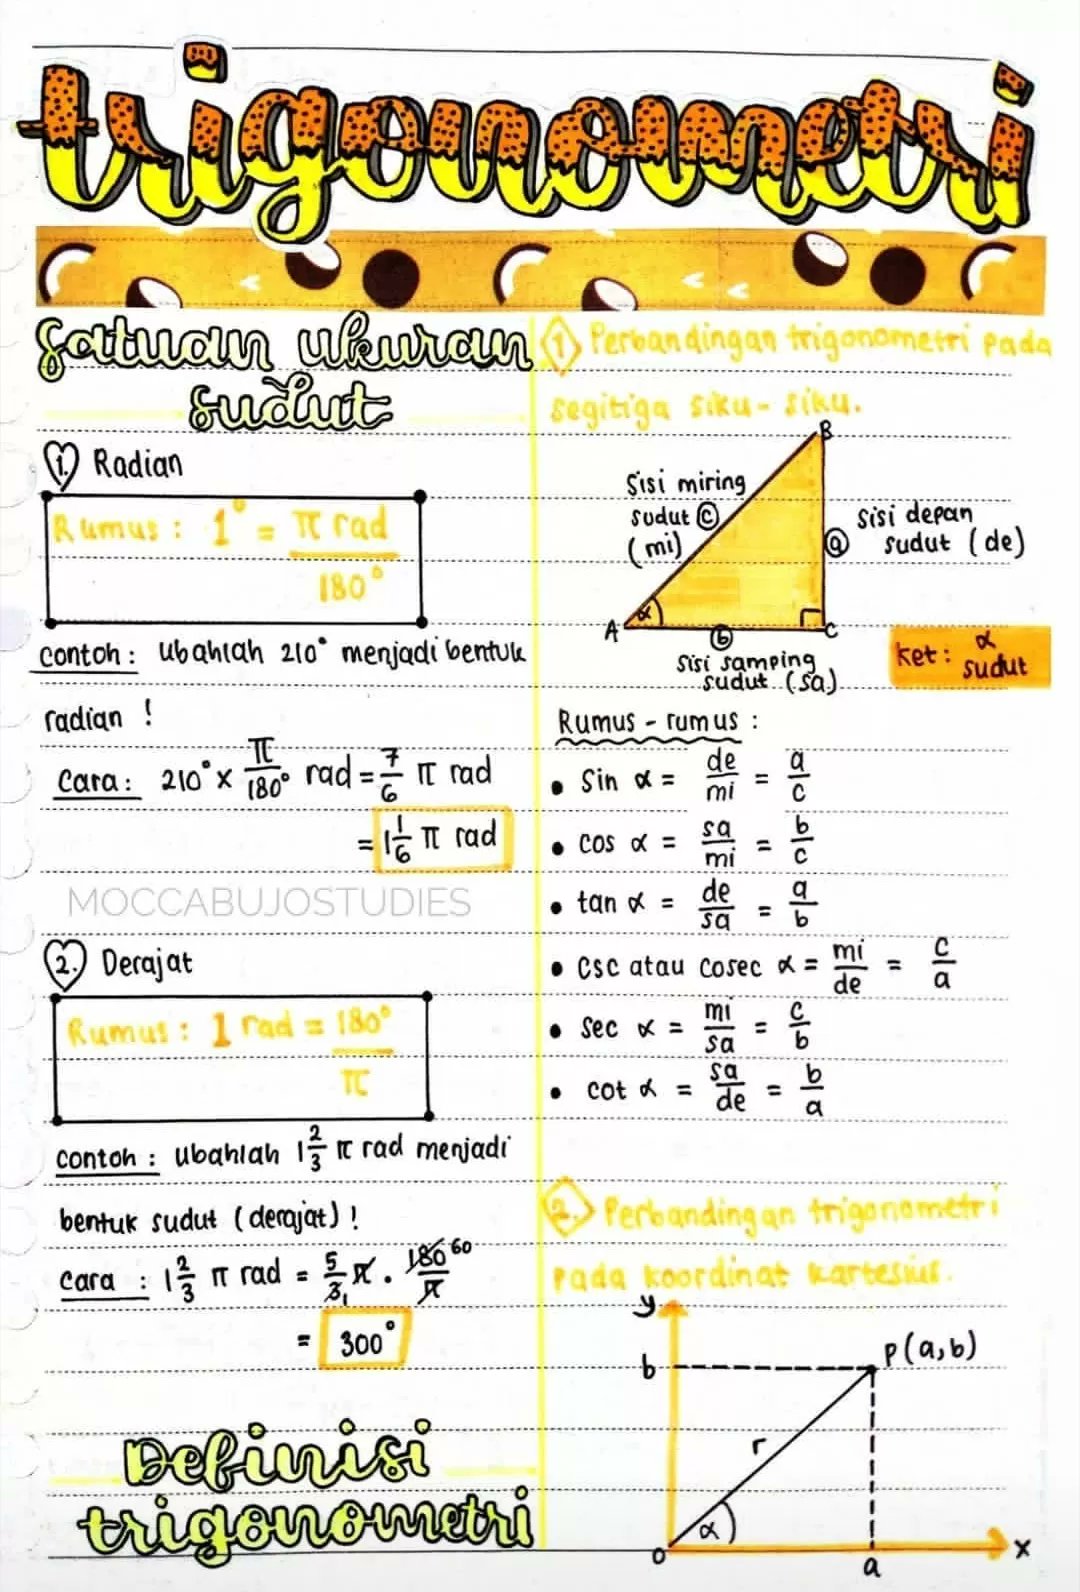 trigonometri
Satuan ukuran
sudut
1. Radian
Rumus : 1° = π rad / 180°
Contoh : Ubahlah 210° menjadi bentuk
radian !
Cara : 210° × π/180° rad = 7/6 π rad
= 1 1/6 π rad
MOCCABUJOSTUDIES
2. Derajat
Rumus : 1 rad = 180° / π
Contoh : Ubahlah 1 2/3 π rad menjadi
bentuk sudut (derajat) !
Cara : 1 2/3 π rad = 5/3 1 π . 180 60 / π
= 300°
Definisi
trigonometri
1 Perbandingan trigonometri pada
segitiga siku - siku.
B
Sisi miring
sudut c
(mi)
a Sisi depan
sudut (de)
A α C
b
Sisi samping
sudut (sa)
ket : α
sudut
Rumus - rumus :
• Sin α = de/mi = a/c
• cos α = sa/mi = b/c
• tan α = de/sa = a/b
• Csc atau Cosec α = mi/de = c/a
• Sec α = mi/sa = c/b
• cot α = sa/de = b/a
2. Perbandingan trigonometri
pada koordinat kartesius.
y
b P(a,b)
r
α
0 a x